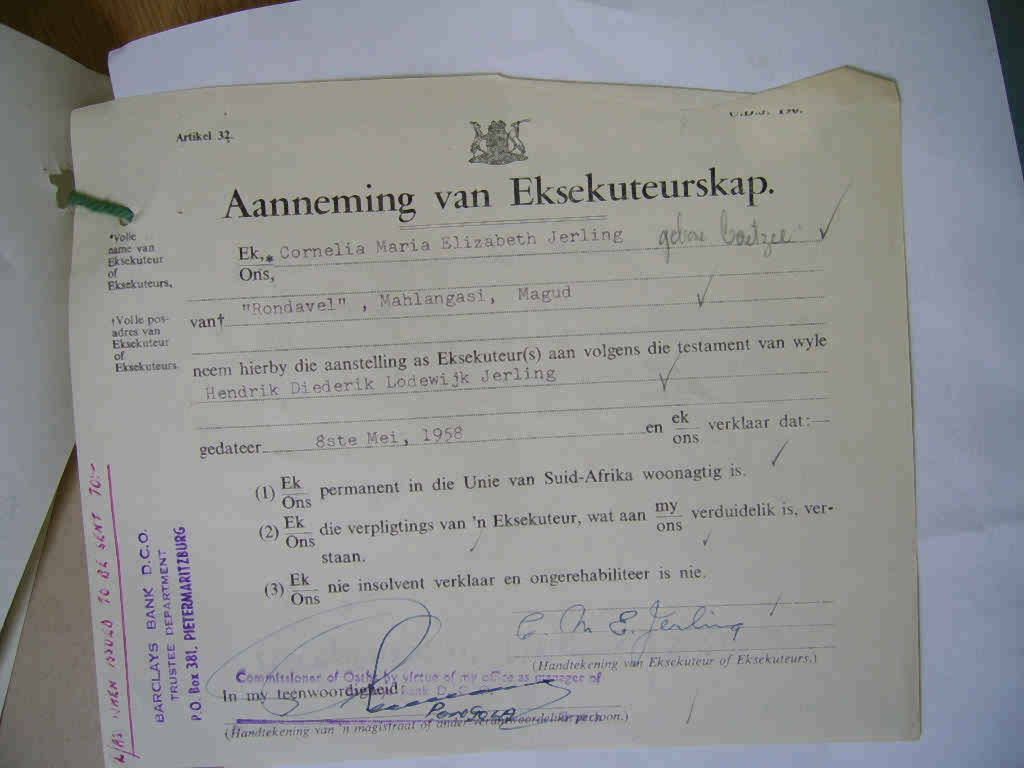 Artikel 32.
Aanneming van Eksekuteurskap.
*Volle
name van
Eksekuteur
of
Eksekuteurs,
Ek,* Cornelia Maria Elizabeth Jerling gebore Coetzee
Ons,
†Volle pos-
adres van
Eksekuteur
of
Eksekuteurs.
van† "Rondavel" , Mahlangasi, Magud
neem hierby die aanstelling as Eksekuteur(s) aan volgens die testament van wyle
Hendrik Diederik Lodewijk Jerling
gedateer 8ste Mei, 1958 en ek verklaar dat:—
ons
(1) Ek permanent in die Unie van Suid-Afrika woonagtig is.
Ons
(2) Ek die verpligtings van 'n Eksekuteur, wat aan my verduidelik is, ver-
Ons ons
staan.
(3) Ek nie insolvent verklaar en ongerehabiliteer is nie.
Ons
C. M. E. Jerling
(Handtekening van Eksekuteur of Eksekuteurs.)
Commissioner of Oaths by virtue of my office as manager of
In my teenwoordigheid
Pongola
(Handtekening van 'n magistraat of ander verantwoordelike persoon.)
L/AS WHEN ISSUED TO BE SENT TO:-
BARCLAYS BANK D.C.O.
TRUSTEE DEPARTMENT
P.O. Box 381, PIETERMARITZBURG